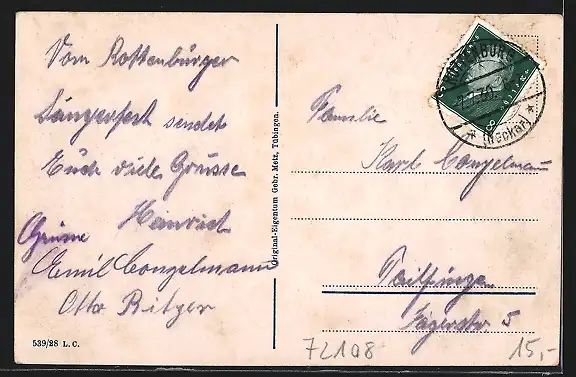 Vom Rottenburger
Sängerfest sendet
Euch viele Grüsse
Heinrich
Grüsse
Emil Conzelmann
Otto Bitzer
539/28 L. C.
Original-Eigentum Gebr. Metz, Tübingen.
ROTTENBURG
(Neckar)
8
Familie
Karl Conzelmann
Tailfingen
Jägerstr 5
72108
15,-